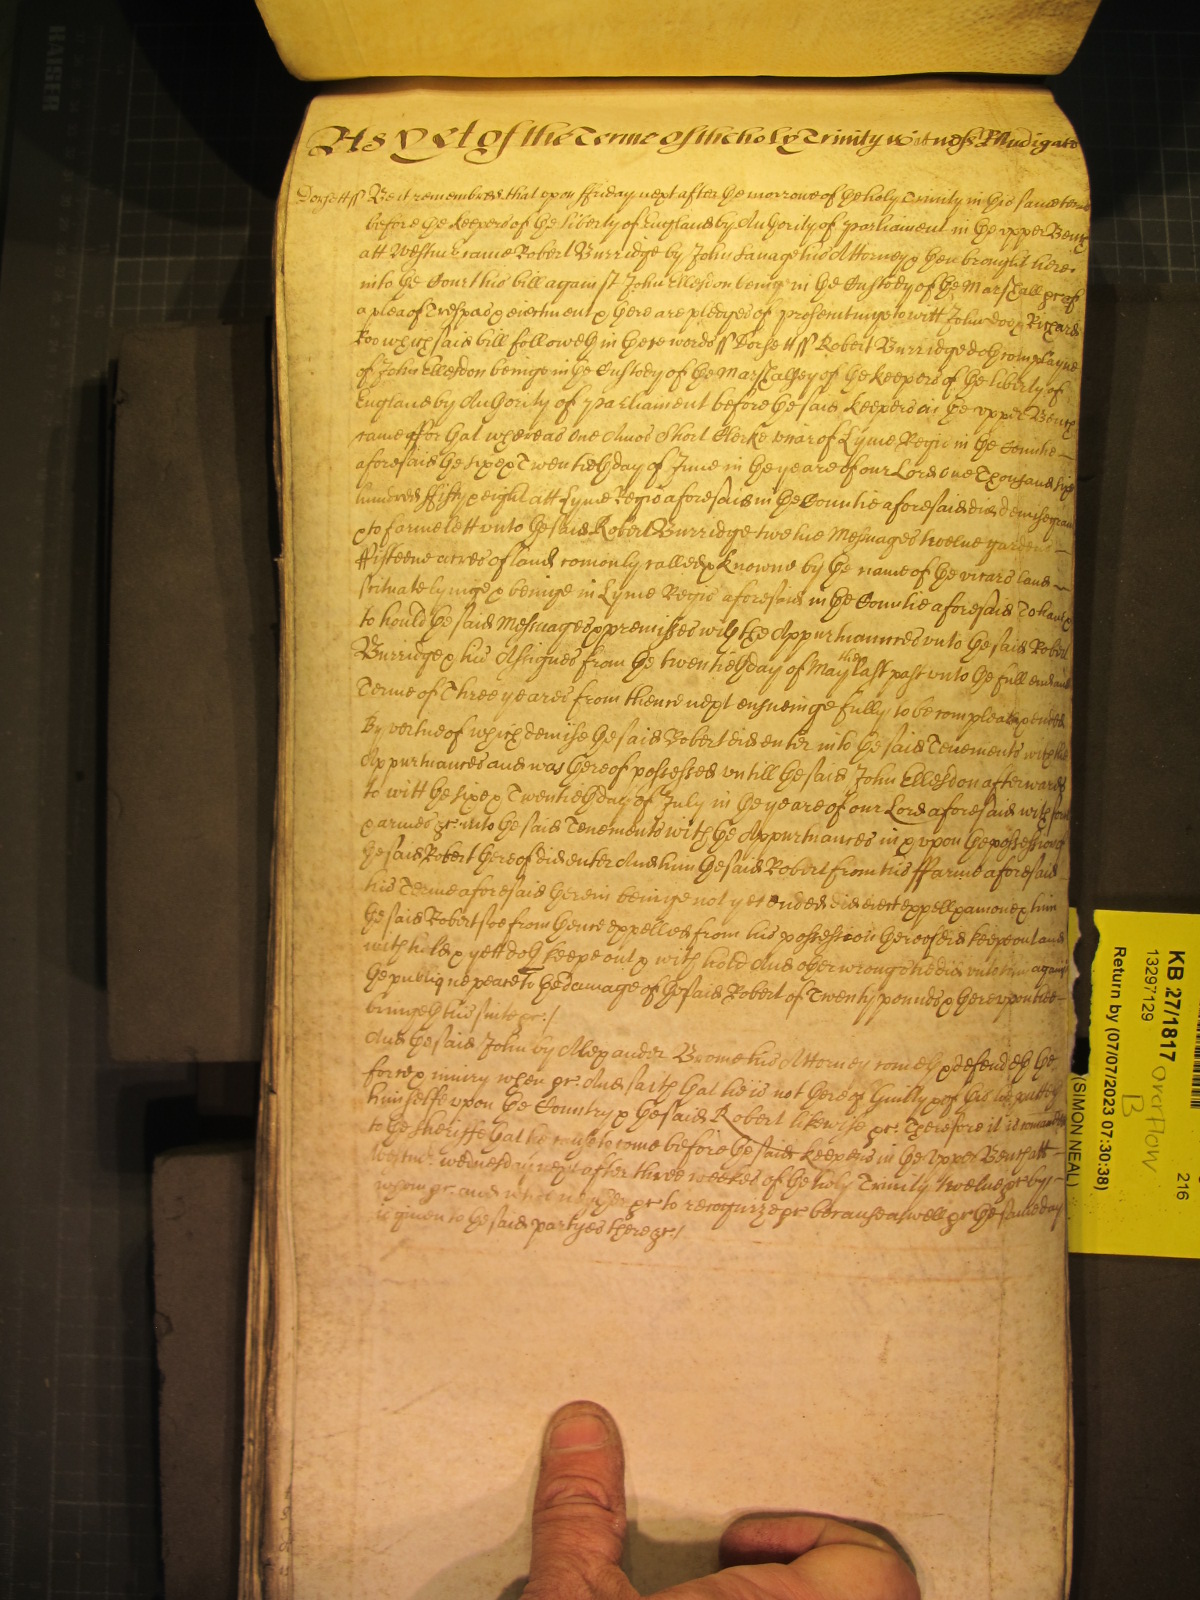 As yet of the Terme of the holy Trinity witnes
Dorsett ss Be it remembred that upon ffriday next after the morrow of the holy Trinity in this same terme
before the keepers of the liberty of England by Authority of parliament in the upper Bench
att Westmr came Robert Burridge by John Savage his Attorney & then brought here
into the Court his bill against John Ellesdon beinge in the Custody of the Marshall &c of
a plea of Trespas & eiectment & there are pledges of prosecuting to witt John doo & Richard
Roo which said bill followeth in these words ss Dorsett ss Robert Burridge doth complayne
of John Ellesdon beinge in the Custody of the Marshalsey of the keepers of the liberty of
England by Authority of Parliament before the said keepers in the upper Bench
came ffor that whereas one Amos Short Clerke vicar of Lyme Regis in the Countie
aforesaid the six & Twentieth day of June in the yeare of our Lord one Thousand six
hundred ffifty & eight att Lyme Regis aforesaid in the Countie aforesaid did demise grant
& to farme lett unto the said Robert Burridge twelue Messuages twelue gardens
ffifteene acres of land comonly called & knowne by the name of the vicars land
scituate lyinge & beinge in Lyme Regis aforesaid in the Countie aforesaid To haue &
to hould the said Messuages & premisses with the Appurtnaunces unto the said Robert
Burridge & his Assignes from the twentieth day of May then last past unto the full end and
Terme of Three yeares from thence next ensueinge fully to be compleat & ended
By vertue of which demise the said Robert did enter into the said Tenements with the
Appurtnances and was thereof possessed untill the said John Ellesdon afterwards
to witt the six & Twentieth day of July in the yeare of our Lord aforesaid with force
& armes &c into the said Tenements with the Appurtnances in & upon the possession of
the said Robert thereof did enter And him the said Robert from his ffarme aforesaid
his Terme aforesaid therein beinge not yet ended did eiect expell & amove & him
the said Robert soe from thence expelled from his possession thereof did keepe out and
withhold & yett doth keepe out & with hold And other wrongs he did unto him against
the publique peace To the damage of the said Robert of Twenty pounds & thereupon hee
bringeth his suite &c:/
And the said John by Alexander Brome his Attorney cometh & defendeth the
force & iniury when &c And saith that he is not thereof Guilty & of this he putteth
himselfe upon the Country & the said Robert likewise &c Therefore it is comanded
to the sheriffe that he cause to come before the said keepers in the Upper Bench att
Westmr wednesday next after three weekes of the holy Trinity twelue &c by
whom &c and who neyther &c to recognize &c because aswell &c the same day
is given to the said partyes there &c/
KB 27/1817
13297129
overflow
B
216
Return by (07/07/2023 07:30:38)
(SIMON NEAL)
KAISER